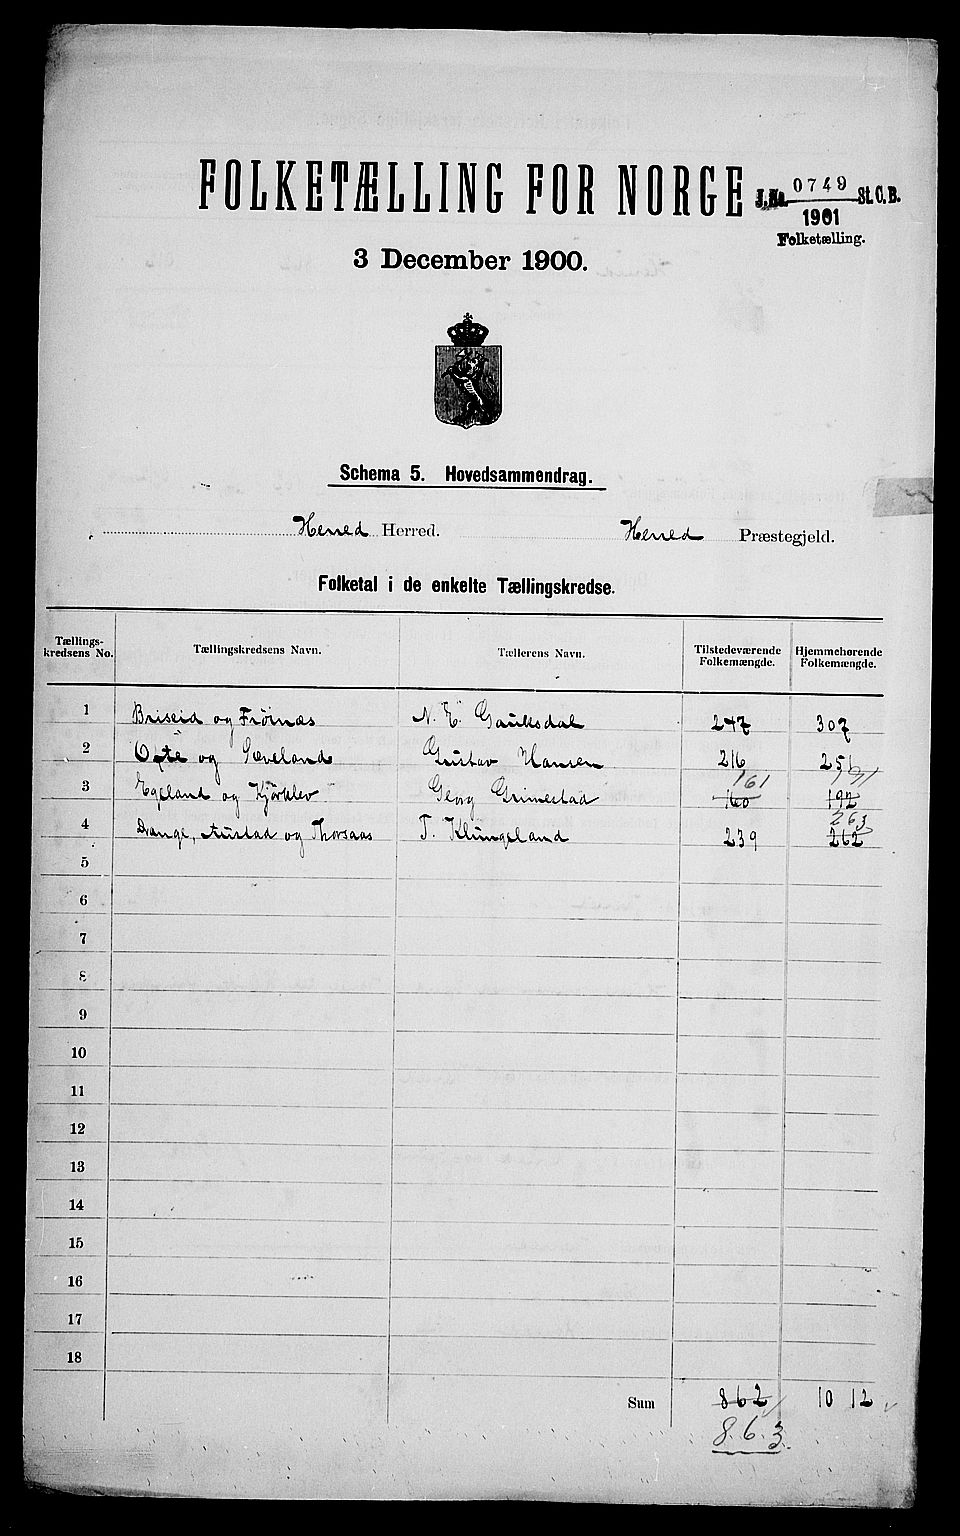 FOLKETÆLLING FOR NORGE
J.No. 0749 St.C.B.
1901
Folketælling.
3 December 1900.
Schema 5. Hovedsammendrag.
Herred Herred. Herred Præstegjeld.
Folketal i de enkelte Tællingskredse.
Tællings-kredsens No. Tællingskredsens Navn. Tællerens Navn. Tilstedeværende Folkemængde. Hjemmehørende Folkemængde.
1 Briseid og Frøinæs N. E. Gauksdal 247 307
2 Ore og Sæveland Gustav Hansen 216 251
161 191
3 Egeland og Kjørklev Georg Grimestad 160 192
263
4 Drange, Austad og Thorsaas T. Klungeland 239 262
5
6
7
8
9
10
11
12
13
14
15
16
17
18
Sum 862 1012
8.6.3.